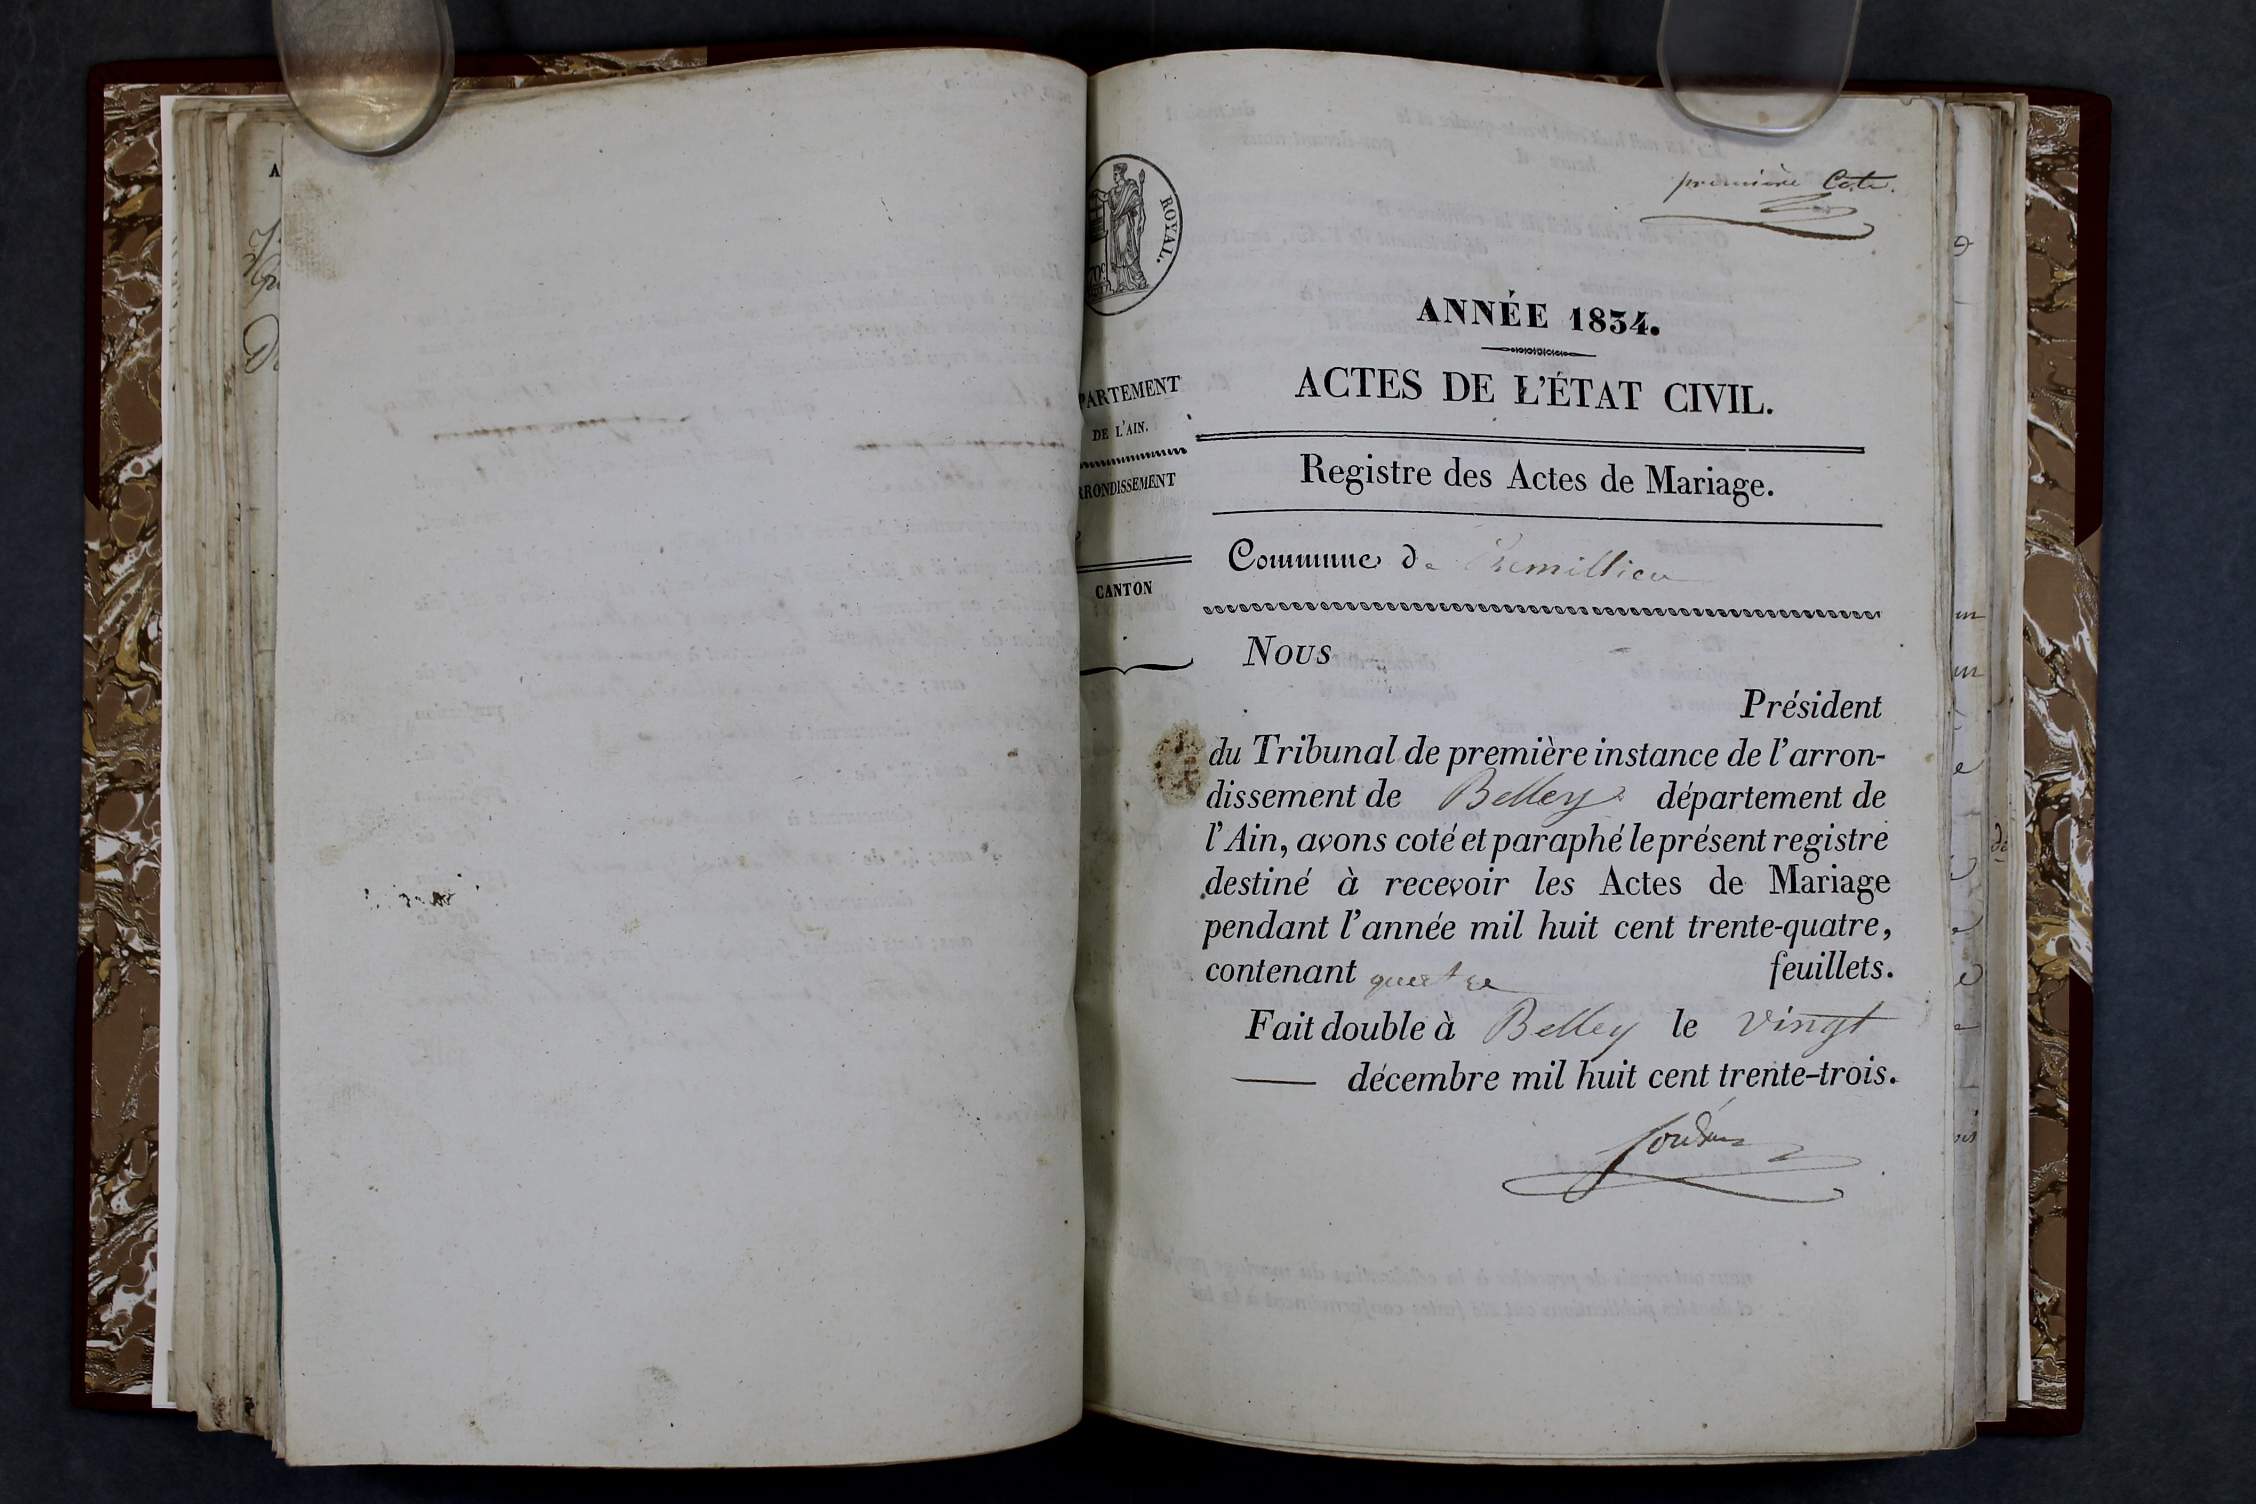 première Cote.
ROYAL.
ANNÉE 1834.
ACTES DE L'ÉTAT CIVIL.
PARTEMENT
DE L'AIN.
RRONDISSEMENT
CANTON
Registre des Actes de Mariage.
Commune de Premillieu
Nous
Président
du Tribunal de première instance de l'arron-
dissement de Belley département de
l'Ain, avons coté et paraphé le présent registre
destiné à recevoir les Actes de Mariage
pendant l'année mil huit cent trente-quatre,
contenant quatre feuillets.
Fait double à Belley le vingt
— décembre mil huit cent trente-trois.